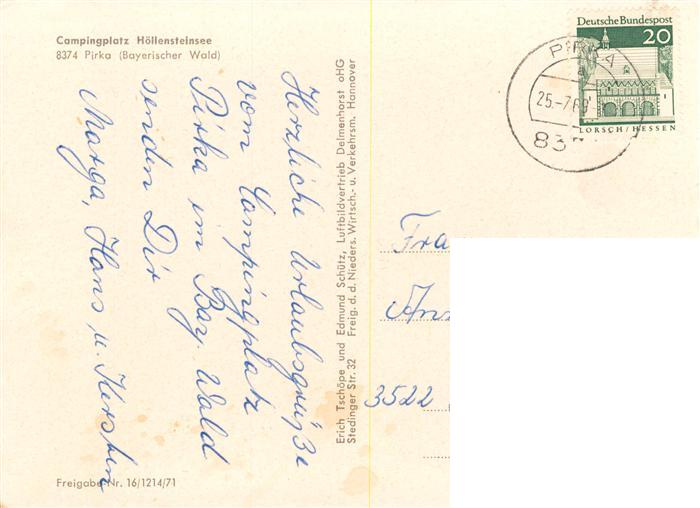 Campingplatz Höllensteinsee
8374 Pirka (Bayerischer Wald)
Herzliche Urlaubsgrüße
vom Campingplatz
Pirka im Bay. Wald
senden Dir
Marga, Hans u. Kersten
Freigabe-Nr. 16/1214/71
Erich Tschöpe und Edmund Schütz, Luftbildvertrieb Delmenhorst oHG
Stedinger Str. 32 Freig. d. d. Nieders. Wirtsch.- u. Verkehrsm. Hannover
Deutsche Bundespost
20
LORSCH/HESSEN
PIRKA
a
25.-7.69
837
Fra
3522